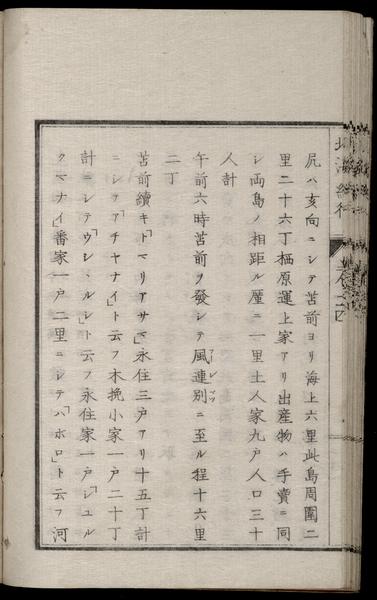 北海紀行
尻ハ亥向ニシテ苫前ヨリ海上六里此島周圍二
里二十六丁栖原運上家アリ出産物ハ手賣ニ同
シ両島ノ相距ル廑ニ一里土人家九戸人口三十
人計
午前六時苫前ヲ發シテ風連別ニ至ル程十六里
二丁
苫前續キ「トマリアサマ」永住三戸アリ十五丁計
ニシテア「チヤナイ」ト云フ木挽小家一戸二十丁
計ニシテ「ウレ、ルレ」ト云フ永住家一戸「レユル
クマナイ」番家一戸二里ニシテ「ハボロ」ト云フ河